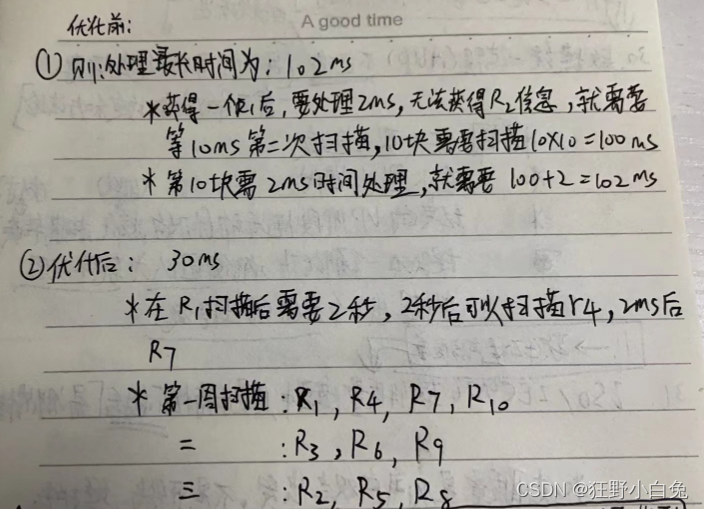 A good time
优化前:
①则:处理最长时间为:102ms
*获得一块后,要处理2ms,无法获得R2信息,就需要
等10ms第二次扫描,10块需要扫描10×10=100ms
*第10块需2ms时间处理,就需要100+2=102ms
②优化后: 30ms
*在R1扫描后需要2秒,2秒后可以扫描r4,2ms后
R7
*第一周扫描:R1,R4,R7,R10
二 :R3,R6,R9
三 :R2,R5,R8
CSDN @狂野小白兔